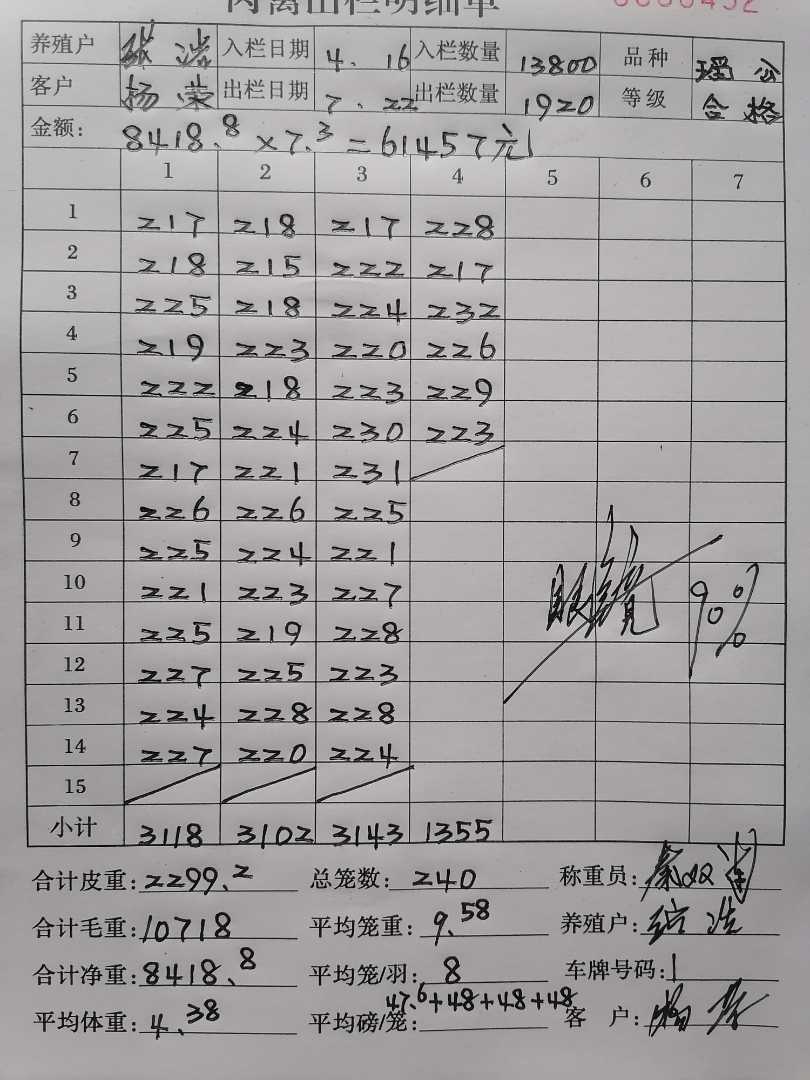 肉禽出栏明细单 0000452
养殖户 张浩 入栏日期 4.16 入栏数量 13800 品种 瑶公
客户 杨荣 出栏日期 7.22 出栏数量 1920 等级 合格
金额: 8418.8×7.3=61457元
1 2 3 4 5 6 7
1 217 218 217 228
2 218 215 222 217
3 225 218 224 232
4 219 223 220 226
5 222 218 223 229
6 225 224 230 223
7 217 221 231
8 226 226 225
9 225 224 221
10 221 223 227
11 225 219 228
12 227 225 223
13 224 228 228
14 227 220 224
15
90%
小计 3118 3102 3143 1355
合计皮重: 2299.2 总笼数: 240 称重员:
合计毛重: 10718 平均笼重: 9.58 养殖户:
合计净重: 8418.8 平均笼/羽: 8 车牌号码: 1
平均体重: 4.38 平均磅/笼: 47.6+48+48+48 客户: